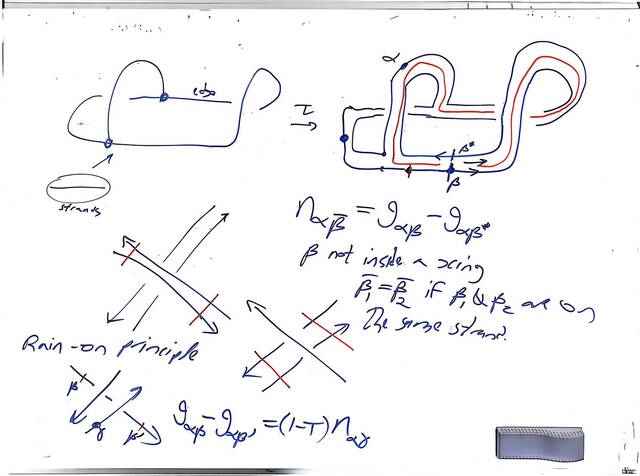 edge
τ
α
β*
β
strands
n_{αβ̄} = g_{αβ} - g_{αβ*}
β not inside a xing
β̄₁ = β̄₂ if β₁ & β₂ are on
the same strand.
Rain-on principle
β
γ
β'
g_{αβ} - g_{αβ'} = (1-T) n_{αγ}